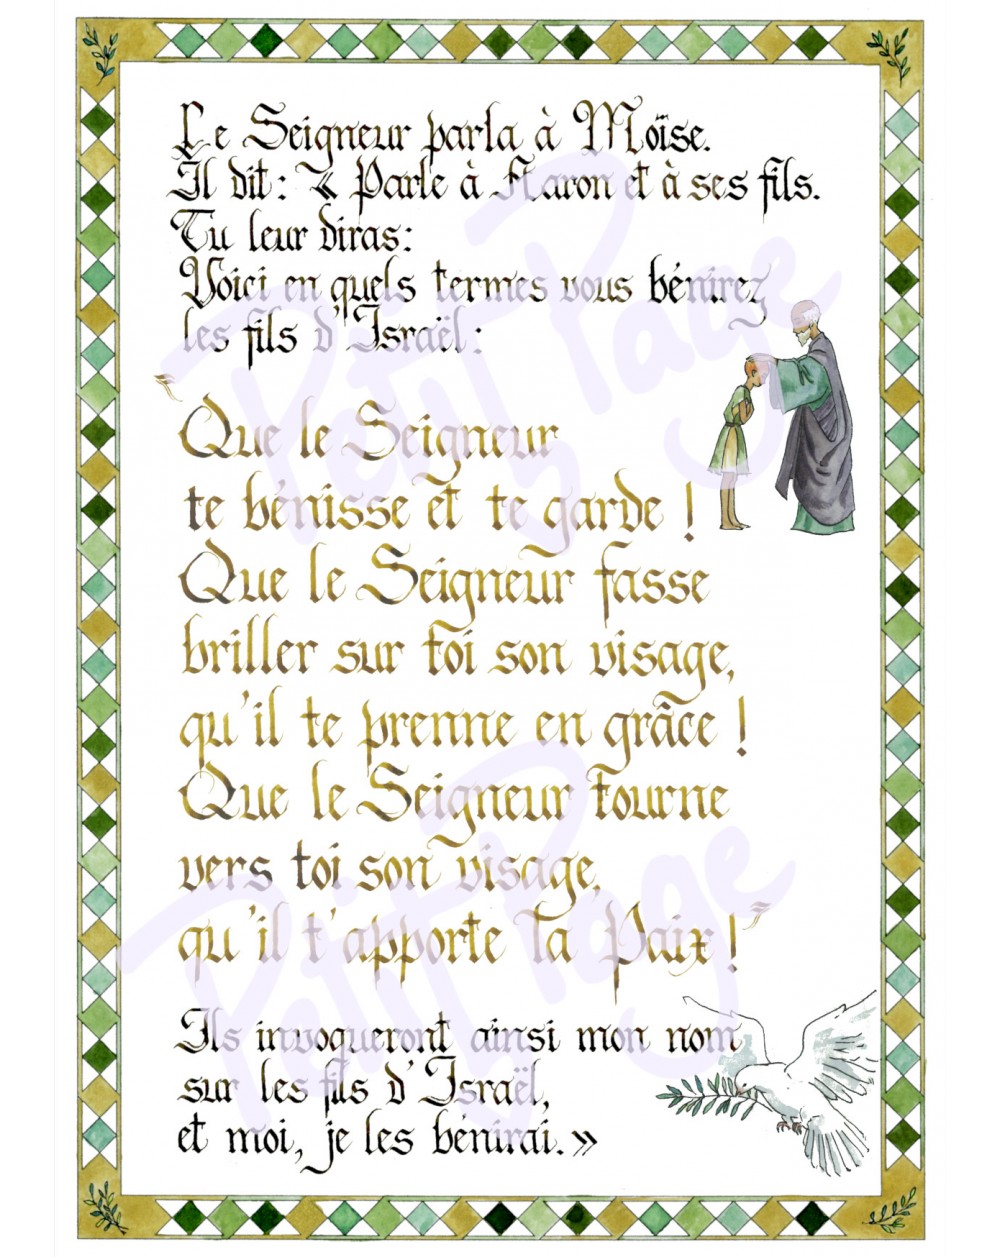 Le Seigneur parla à Moïse.
Il dit : « Parle à Aaron et à ses fils.
Tu leur diras :
Voici en quels termes vous bénirez
les fils d'Israël :
"Que le Seigneur
te bénisse et te garde !
Que le Seigneur fasse
briller sur toi son visage,
qu'il te prenne en grâce !
Que le Seigneur tourne
vers toi son visage,
qu'il t'apporte la Paix !"
Ils invoqueront ainsi mon nom
sur les fils d'Israël,
et moi, je les bénirai. »
Petit Page
Petit Page